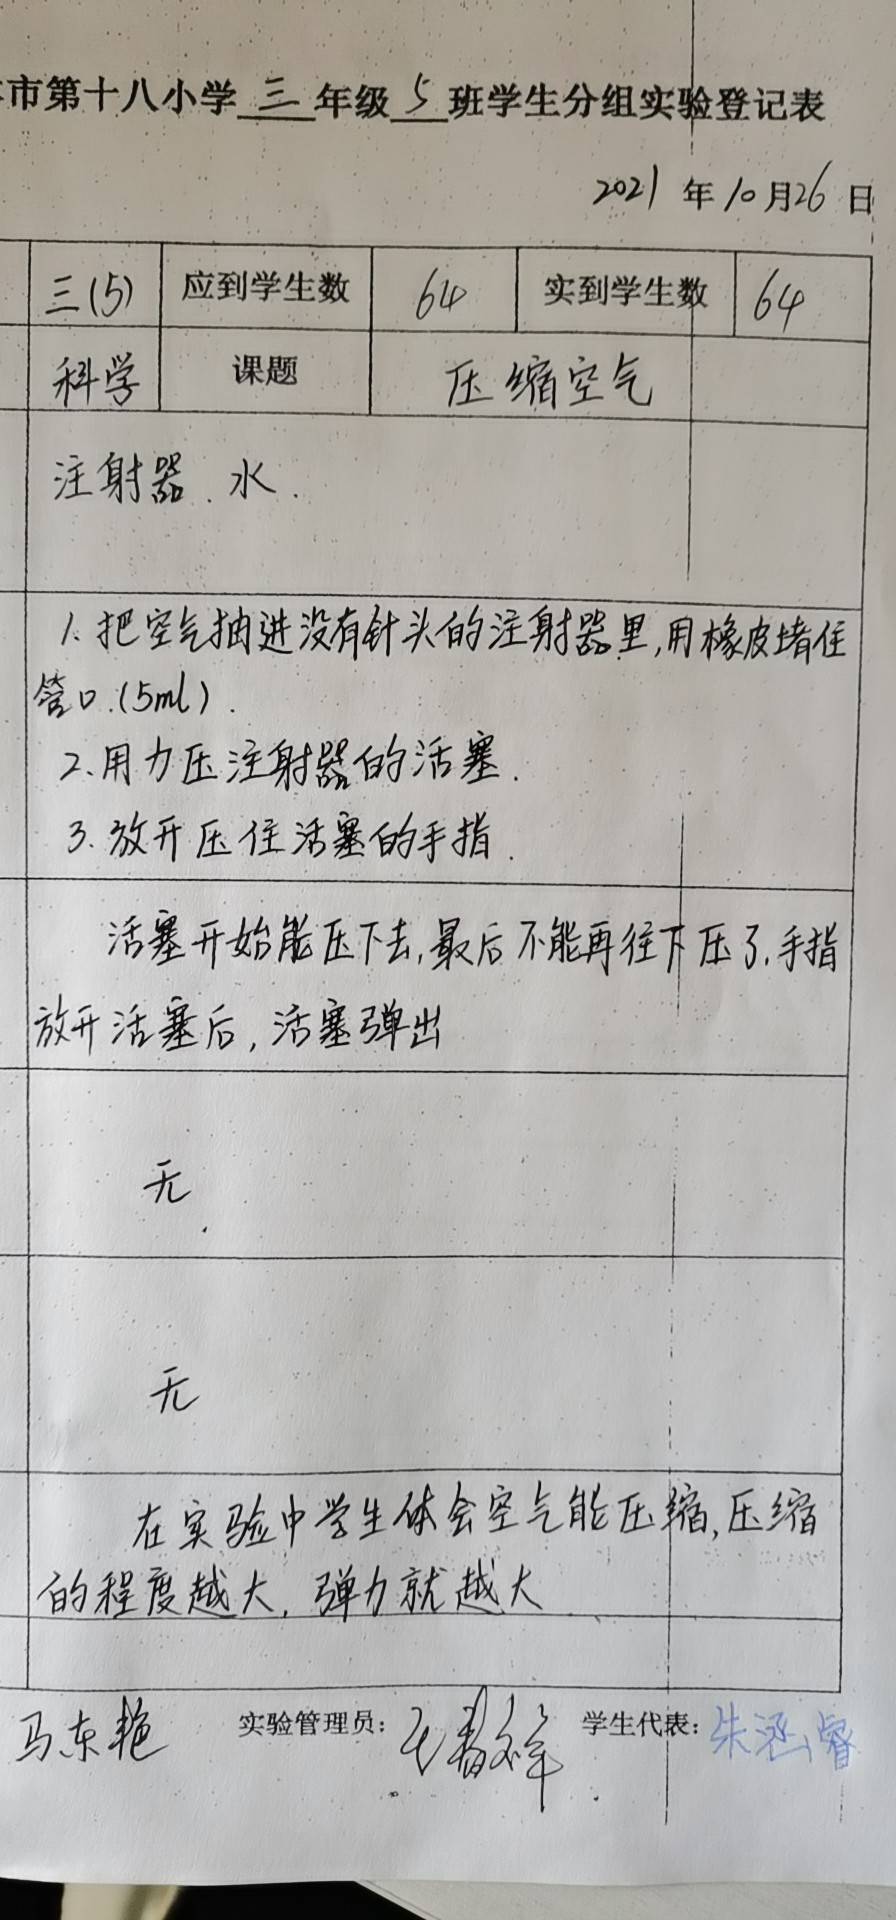 市第十八小学三年级5班学生分组实验登记表
2021年10月26日
三(5) 应到学生数 64 实到学生数 64
科学 课题 压缩空气
注射器.水.
1.把空气抽进没有针头的注射器里,用橡皮堵住
管口.(5ml).
2.用力压注射器的活塞.
3.放开压住活塞的手指.
活塞开始能压下去,最后不能再往下压了.手指
放开活塞后,活塞弹出
无
无
在实验中学生体会空气能压缩,压缩
的程度越大,弹力就越大
马东艳 实验管理员: 学生代表:朱涵睿